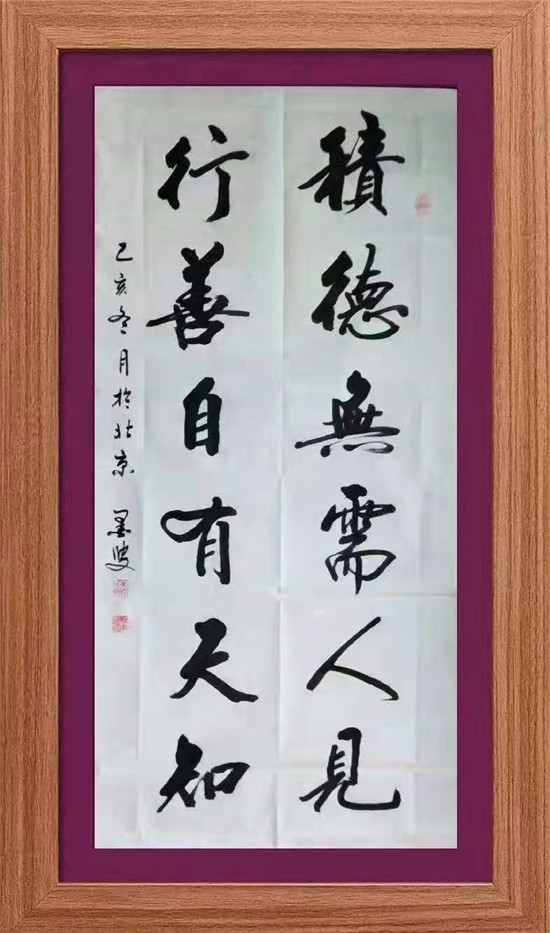 積德無需人見
行善自有天知
己亥冬月於北京